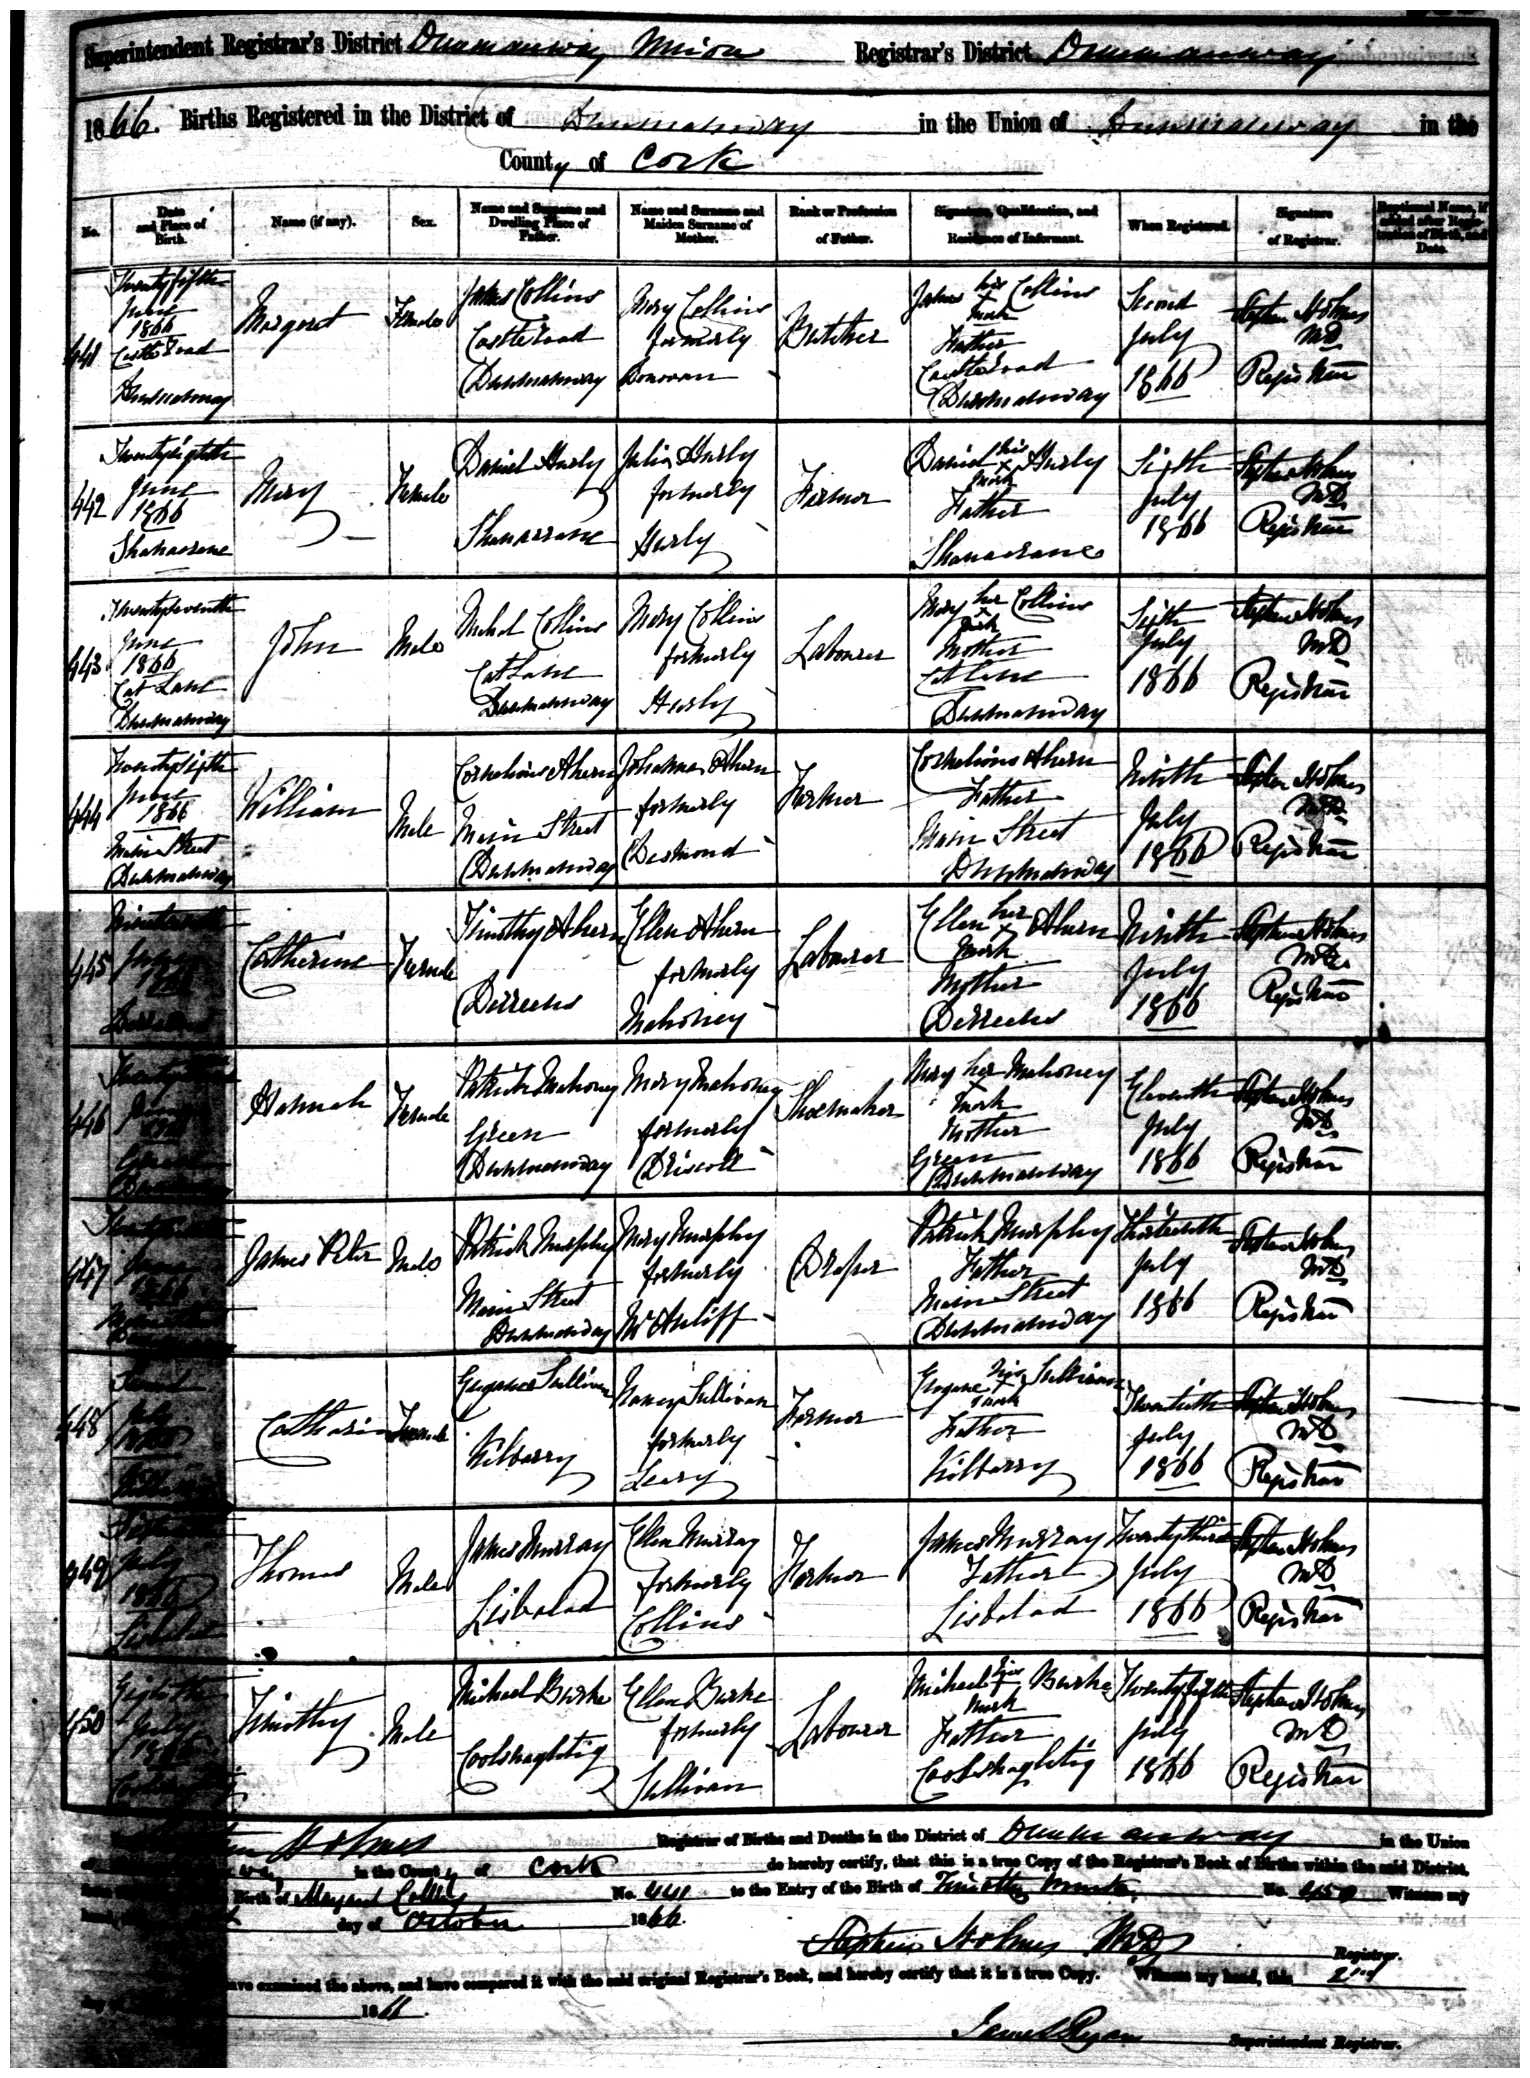 Superintendent Registrar's District Dunmanway Union Registrar's District Dunmanway
1866. Births Registered in the District of Dunmanway in the Union of Dunmanway in the
County of Cork
No. Date and Place of Birth. Name (if any). Sex. Name and Surname and Dwelling Place of Father. Name and Surname and Maiden Surname of Mother. Rank or Profession of Father. Signature, Qualification, and Residence of Informant. When Registered. Signature of Registrar. Baptismal Name, if added after Registration of Birth, and Date.
441 Twenty fifth June 1866 Castle Road Dunmanway Margaret Female James Collins Castle Road Dunmanway Mary Collins formerly Donovan Butcher James his x mark Collins Father Castle Road Dunmanway Second July 1866 Stephen Holmes MD Registrar
442 Twenty eighth June 1866 Shanacrane Mary Female Daniel Hurly Shanacrane Julia Hurly formerly Hurly Farmer Daniel his x mark Hurly Father Shanacrane Sixth July 1866 Stephen Holmes MD Registrar
443 Twenty seventh June 1866 Cat Lane Dunmanway John Male Michal Collins Cat Lane Dunmanway Mary Collins formerly Hurly Labourer Mary her x mark Collins Mother Cat Lane Dunmanway Sixth July 1866 Stephen Holmes MD Registrar
444 Twenty sixth June 1866 Main Street Dunmanway William Male Cornelious Ahern Main Street Dunmanway Johanna Ahern formerly Desmond Farmer Cornelious Ahern Father Main Street Dunmanway Ninth July 1866 Stephen Holmes MD Registrar
445 June 1866 Catherine Female Timothy Ahern Derreens Ellen Ahern formerly Mahoney Labourer Ellen her x mark Ahern Mother Derreens Ninth July 1866 Stephen Holmes MD Registrar
446 June Green Dunmanway Hannah Female Patrick Mahoney Green Dunmanway Mary Mahoney formerly Driscoll Shoemaker Mary her x mark Mahoney Mother Green Dunmanway Eleventh July 1866 Stephen Holmes MD Registrar
447 June 1866 James Peter Male Patrick Murphy Main Street Dunmanway Mary Murphy formerly McAuliff Draper Patrick Murphy Father Main Street Dunmanway Thirteenth July 1866 Stephen Holmes MD Registrar
448 Second July Catharin Female Eugene Sullivan Kilbarry Nancy Sullivan formerly Leary Farmer Eugene his x mark Sullivan Father Kilbarry Twentieth July 1866 Stephen Holmes MD Registrar
449 July 1866 Thomas Male James Murray Lisbalad Ellen Murray formerly Collins Farmer James Murray Father Lisbalad Twenty third July 1866 Stephen Holmes MD Registrar
450 Eighth July 1866 Timothy Male Michael Burke Ellen Burke formerly Sullivan Labourer Michael his x mark Burke Father Twenty fifth July 1866 Stephen Holmes MD Registrar
Holmes Registrar of Births and Deaths in the District of Dunmanway in the Union
in the County of Cork do hereby certify, that this is a true Copy of the Registrar's Book of Births within the said District,
Birth of Margaret Collins No. 441 to the Entry of the Birth of Timothy No. 450 Witness my
day of October 1866.
Stephen Holmes MD Registrar.
have examined the above, and have compared it with the said original Registrar's Book, and hereby certify that it is a true Copy. Witness my hand, this 2nd
1866.
James Ryan Superintendent Registrar.